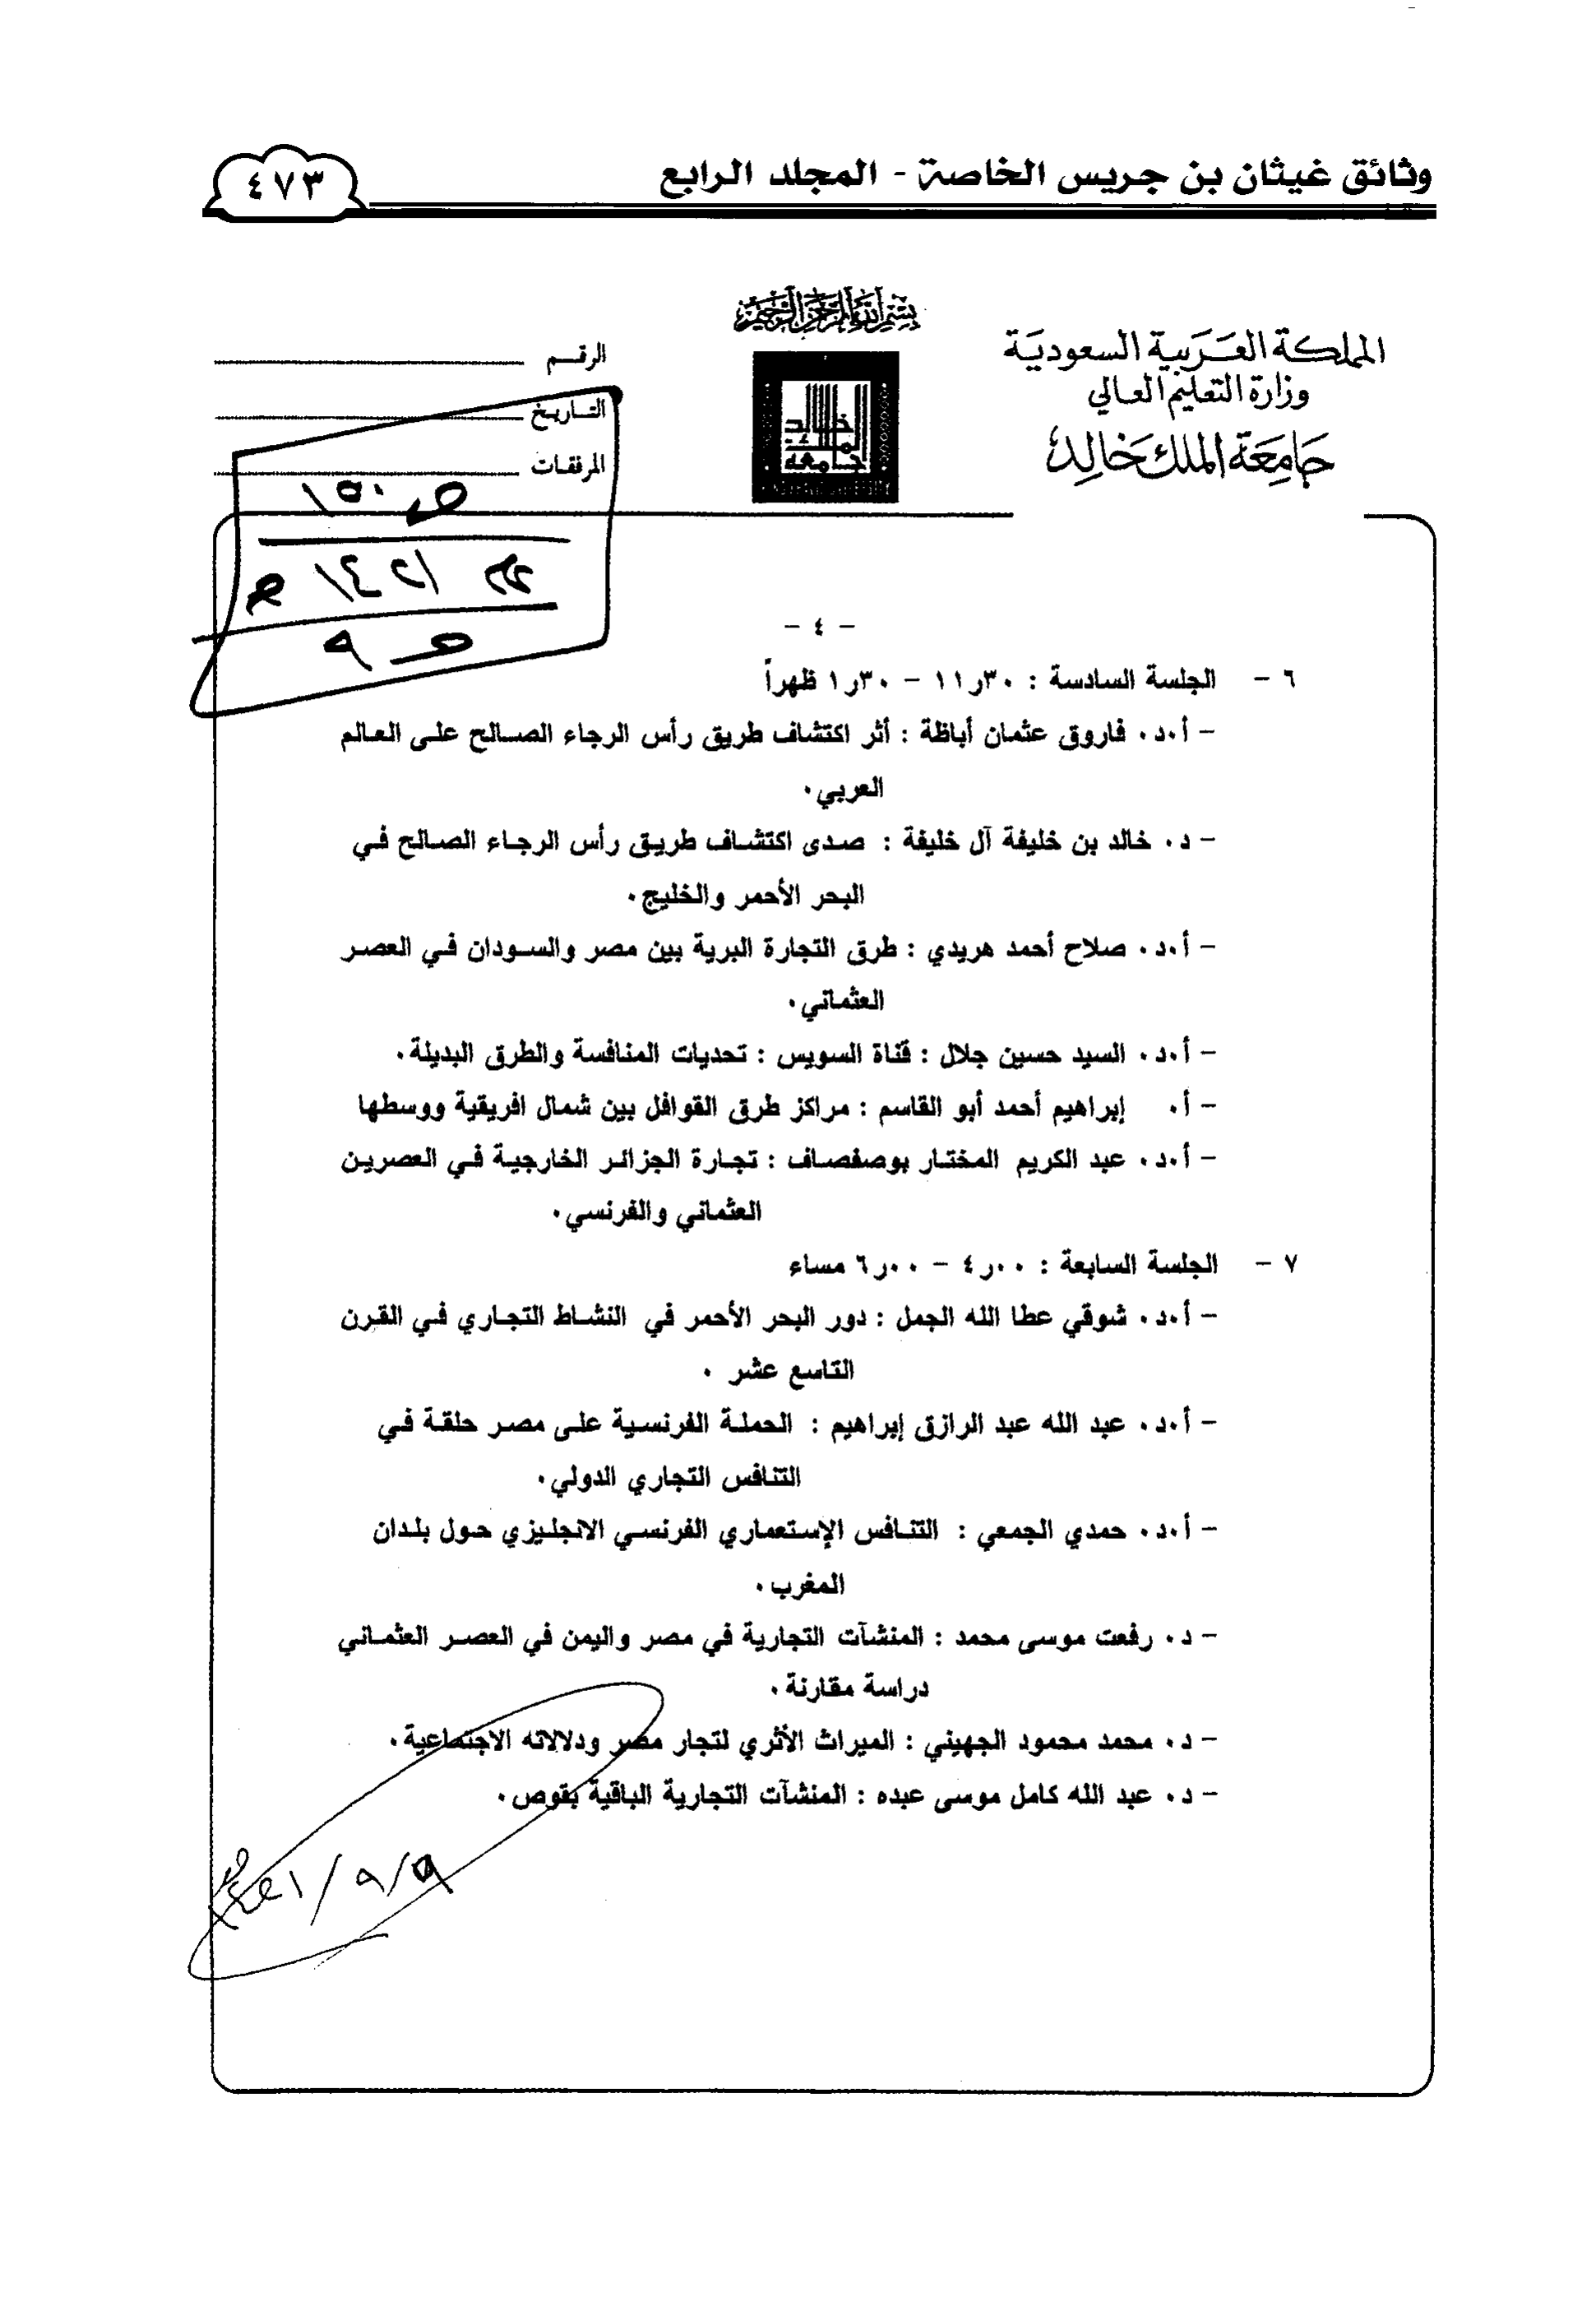 وثائق غيثان بن جريس الخاصة - المجلد الرابع
٤٧٣
بسم الله الرحمن الرحيم
المملكة العربية السعودية
وزارة التعليم العالي
جامعة الملك خالد
جامعة الملك خالد
الرقم
التاريخ
المرفقات
ص ١٥٠
١٤٢١ هـ
ص ٩
- ٤ -
٦ - الجلسة السادسة : ٣٠ر١١ - ٣٠ر١ ظهراً
- أ.د. فاروق عثمان أباظة : أثر اكتشاف طريق رأس الرجاء الصالح على العالم
العربي.
- د. خالد بن خليفة آل خليفة : صدى اكتشاف طريق رأس الرجاء الصالح في
البحر الأحمر والخليج.
- أ.د. صلاح أحمد هريدي : طرق التجارة البرية بين مصر والسودان في العصر
العثماني.
- أ.د. السيد حسين جلال : قناة السويس : تحديات المنافسة والطرق البديلة.
- أ. إبراهيم أحمد أبو القاسم : مراكز طرق القوافل بين شمال افريقية ووسطها
- أ.د. عبد الكريم المختار بوصفصاف : تجارة الجزائر الخارجية في العصرين
العثماني والفرنسي.
٧ - الجلسة السابعة : ٠٠ر٤ - ٠٠ر٦ مساء
- أ.د. شوقي عطا الله الجمل : دور البحر الأحمر في النشاط التجاري في القرن
التاسع عشر .
- أ.د. عبد الله عبد الرازق إبراهيم : الحملة الفرنسية على مصر حلقة في
التنافس التجاري الدولي.
- أ.د. حمدي الجمعي : التنافس الإستعماري الفرنسي الانجليزي حول بلدان
المغرب.
- د. رفعت موسى محمد : المنشآت التجارية في مصر واليمن في العصر العثماني
دراسة مقارنة.
- د. محمد محمود الجهيني : الميراث الأثري لتجار مصر ودلالاته الاجتماعية.
- د. عبد الله كامل موسى عبده : المنشآت التجارية الباقية بقوص.